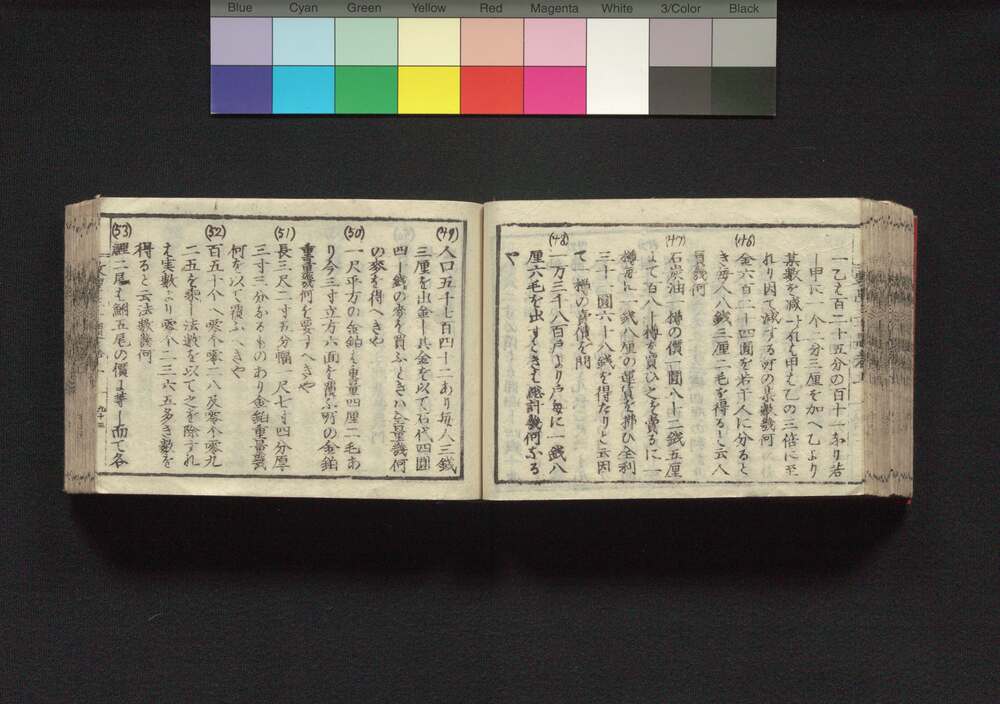 Blue Cyan Green Yellow Red Magenta White 3/Color Black
一乙ハ百二十五分の百十一あり若
し甲に一个二分三厘を加へ乙より
其数を減ずれハ甲ハ乙の三倍に至
れり因て減ずる所の某数幾何
(46)
金六百二十四圓を若干人に分ると
き毎人八錢三厘二毛を得ると云人
員幾何
(47)
石炭油一樽の價一圓八十二錢五厘
にて百八十樽を買ひ之を賣るに一
樽毎に一錢八厘の運賃を拂ひ全利
三十二圓六十八錢を得たりと云因
て一樽の賣價を問
(48)
一万三千八百戸より戸毎に一錢八
厘六毛を出すときハ總計幾何なる
や
(49)
人口五千七百四十二あり毎人三錢
三厘を出金し其金を以て石代四圓
四十錢の麥を買ふときハ合量幾何
の麥を得へきや
(50)
一尺平方の金鉑ハ重量四厘二毛あ
り今三寸立方六面を覆ふ所の金鉑
重量幾何を要すへきや
(51)
長三尺二寸五分幅一尺七寸四分厚
三寸三分なるものあり金鉑重量幾
何を以て覆ふへきや
(52)
百五十个へ零个零二八及零个零九
二五を乘し法數を以て之を除すれ
ハ実數より零个二三六五多き數を
得ると云法數幾何
(53)
鯉二尾ハ鯛五尾の價に等し而て各
九十三